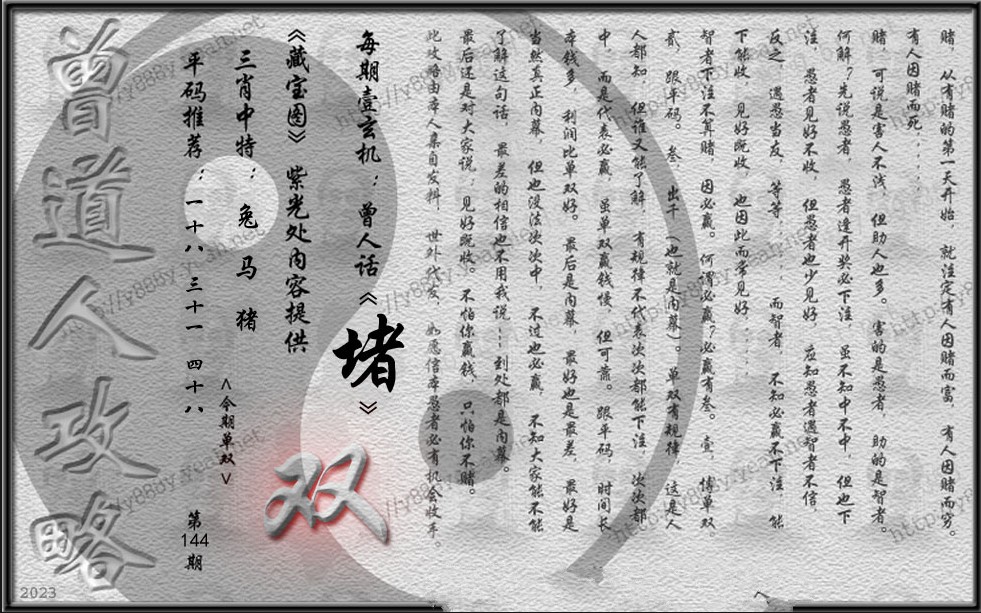 赌，从有赌的第一天开始，就注定有人因赌而富，有人因赌而穷。
有人因赌而死，……
赌，可说是害人不浅，但助人也多。害的是愚者，助的是智者。
何解？先说愚者，愚者逢开奖必下注，虽不知中不中，但也下
注，愚者见好不收，但愚者也少见好，应知愚者遇智者不信，
反之，遇愚当友，等等，……而智者，不知必赢不下注，能
下能收，见好既收，也因此而常见好，……
智者下注不算赌，因必赢。何谓必赢？必赢有叁。壹，博单双
贰，跟平码。叁，出千（也就是内幕）。单双有规律，这是人
人都知，但谁又能了解，有规律不代表次次都能下注，次次都
中，而是代表必赢，虽单双赢钱慢，但可靠。跟平码，时间长
本钱多，利润比单双好。最后是内幕，最好也是最差，最好是
当然真正内幕，但也没法次次中，不过也必赢，不知大家能不能
了解这句话，最差的相信也不用我说……到处都是内幕。
最后还是对大家说，见好既收。不怕你赢钱，只怕你不赌。
此攻略由本人亲自发料，世外代发，如愿信本愚者必有机会收手。
每期壹玄机：曾人话《堵》
《藏宝图》紫光处内容提供
双
三肖中特：兔 马 猪
<今期单双>
平码推荐：一十八 三十一 四十八
第144期
曾道人攻略
2023
http://y88by.yeah.net